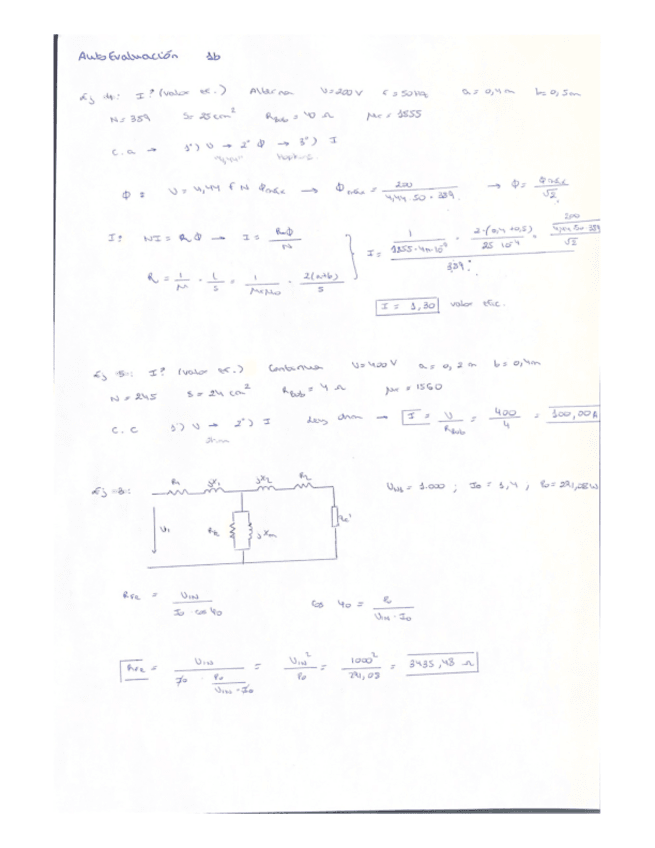 AutoEvaluación 1b
Ej 4: I? (valor ef.) Alterna V=200V f=50Hz a=0,4m b=0,5m
N=389 S=25cm² Rbob=40 Ω μr=1855
c.a → 1º) V → 2º Φ → 3º) I
Hopkins.
Φ = V=4,44 f N Φmáx → Φmáx = 200 / 4,44·50·389 → Φ = Φmáx / √2
I? NI = RΦ → I = RΦ / N
I = 1 / 1855·4π·10⁻⁷ · 2·(0,4+0,5) / 25·10⁻⁴ · 200 / 4,44·50·389 / √2 / 389
R = 1/μ · l/S = 1 / μrμ0 · 2(a+b) / S
I = 1,30 valor efic.
Ej 5: I? (valor ef.) Continua V=400V a=0,2m b=0,4m
N=245 S=24cm² Rbob=4 Ω μr=1560
C.C 1º) V → 2º) I Ley Ohm → I = V / Rbob = 400 / 4 = 100,00A
Ohm
Ej 8:
R1 jX1 jX2 R2
U1N=1.000 ; I0=1,4 , P0=291,08W
U1 jXm
RFe = U1N / I0·cos φ0 cos φ0 = P0 / U1N·I0
RFe = U1N / I0 · P0 / U1N·I0 = U1N² / P0 = 1000² / 291,08 = 3435,48 Ω